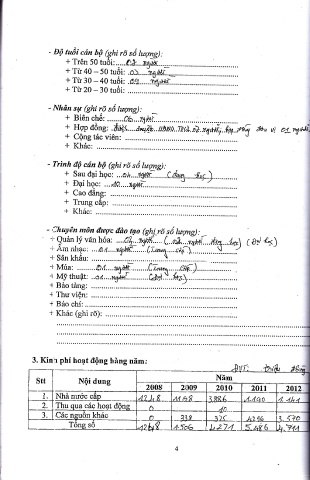 - Độ tuổi cán bộ (ghi rõ số lượng):
+ Trên 50 tuổi: 03 người
+ Từ 40 – 50 tuổi: 03 người
+ Từ 30 – 40 tuổi: 09 người
+ Từ 20 – 30 tuổi:
- Nhân sự (ghi rõ số lượng):
+ Biên chế: 06 người
+ Hợp đồng: người, 01 người
+ Cộng tác viên:
+ Khác:
- Trình độ cán bộ (ghi rõ số lượng):
+ Sau đại học: 04 người (đang học)
+ Đại học: 10 người
+ Cao đẳng:
+ Trung cấp:
+ Khác:
- Chuyên môn được đào tạo (ghi rõ số lượng):
+ Quản lý văn hóa: 04 người ( người đang học) (Đại học)
+ Âm nhạc: 01 người (Trung cấp)
+ Sân khấu:
+ Múa: 01 người (Trung cấp)
+ Mỹ thuật: 01 người (Đại học)
+ Bảo tàng:
+ Thư viện:
+ Báo chí:
+ Khác (ghi rõ):
3. Kinh phí hoạt động hàng năm:
ĐVT: triệu đồng
Stt Nội dung Năm
2008 2009 2010 2011 2012
1. Nhà nước cấp 1248 1168 3.886 1.190
2. Thu qua các hoạt động 0 10
3. Các nguồn khác 0 338 375 4296 3.570
Tổng số 1248 1506 4.271 5.486 4.711
4